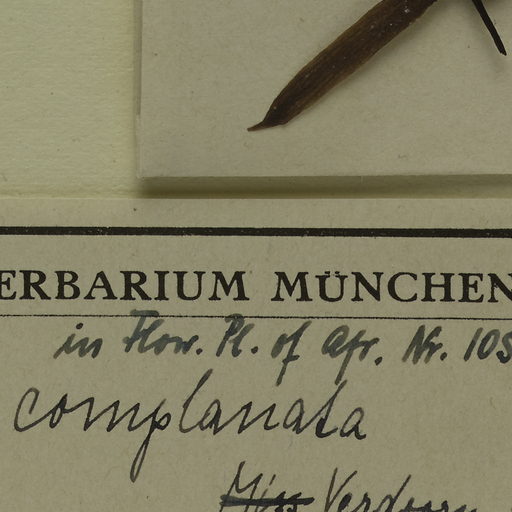 ERBARIUM MÜNCHEN
in Flow. Pl. of Afr. Nr. 105
complanata
Miss Verdoorn